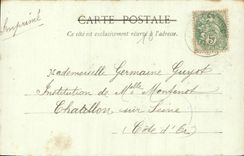 CARTE POSTALE
Ce côté est exclusivement réservé à l'adresse.
Imprimé
Mademoiselle Germaine Guyot
Institution de Melle Monfenot
Chatillon sur Seine
(Côte d'Or)